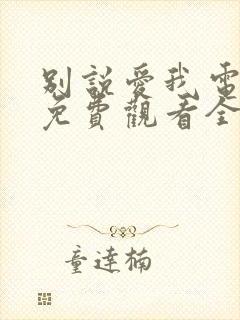 別說愛我電
免費觀看全
童達楠